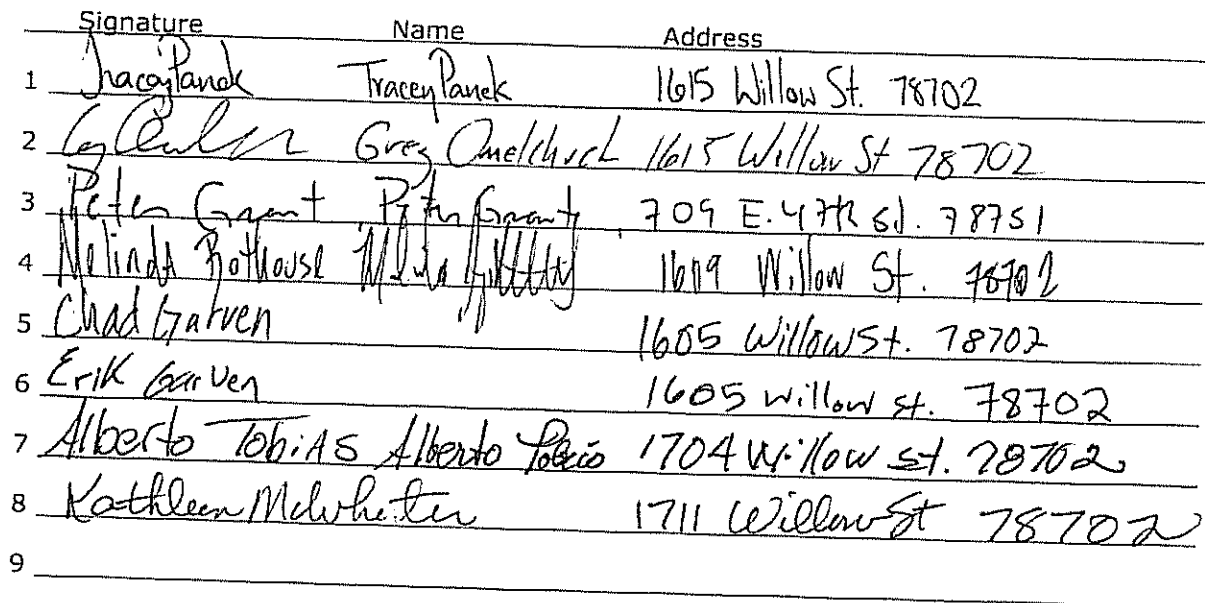 Signature Name Address
1 Tracey Panek Tracey Panek 1615 Willow St. 78702
2 Greg 1615 Willow St 78702
3 Peter Grant Peter Grant 709 E. 47th st. 78751
4 Melinda Rothouse 1609 Willow St. 78702
5 Chad Garven 1605 Willow St. 78702
6 Erik Garven 1605 Willow st. 78702
7 Alberto TobiAS Alberto Tobias 1704 Willow st. 78702
8 Kathleen McWhirter 1711 Willow St 78702
9